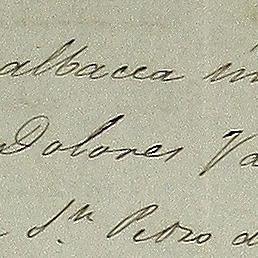 albacea
Dolores Va
Sn Pedro d